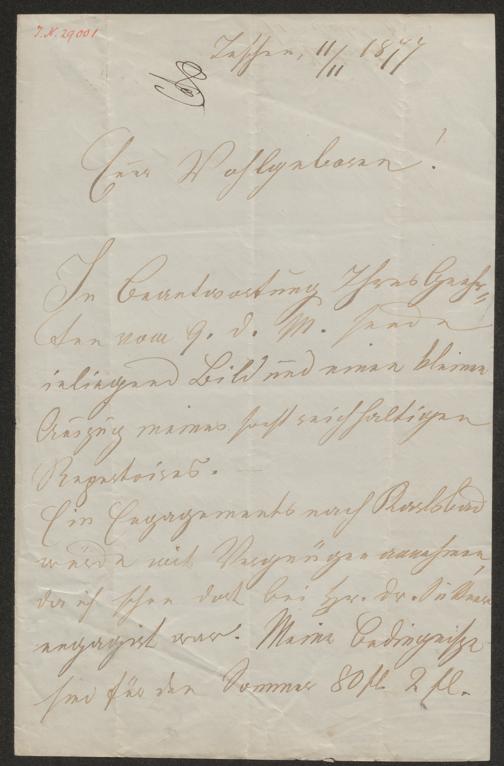 I.N. 29001
Teschen, 11/11 1877
Euer Wohlgeboren!
In Beantwortung Ihres Geehr-
ten vom 9. d. M. sende
inliegend Bild und einen kleinen
Auszug meines sehr reichhaltigen
Repertoires.
Ein Engagements nach Karlsbad
würde mit Vergnügen annehmen,
da ich schon dort bei Hr. Dr.
engagirt war. Meine Bedingnisse
sind für den Sommer 80 fl. 2 fl.